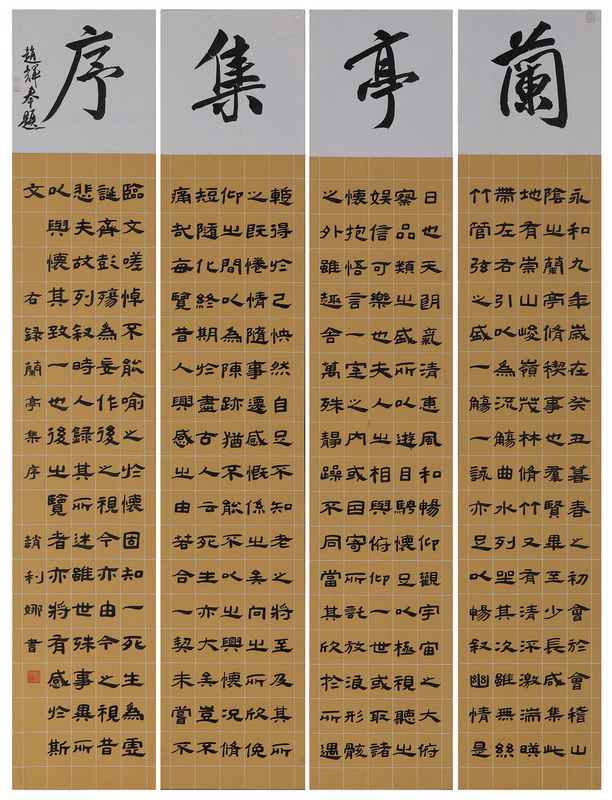 蘭
亭
集
序
趙輝本題
永和九年歲在癸丑暮春之初會於會稽山
陰之蘭亭脩禊事也羣賢畢至少長咸集此
地有崇山峻嶺茂林脩竹又有清流激湍暎
帶左右引以為流觴曲水列坐其次雖無絲
竹管弦之盛一觴一詠亦足以暢叙幽情是
日也天朗氣清惠風和暢仰觀宇宙之大俯
察品類之盛所以遊目騁懷足以極視聽之
娛信可樂也夫人之相與俯仰一世或取諸
懷抱悟言一室之內或因寄所託放浪形骸
之外雖趣舍萬殊靜躁不同當其欣於所遇
暫得於己怏然自足不知老之將至及其所
之既惓情隨事遷感慨係之矣向之所欣俛
仰之間以為陳跡猶不能不以之興懷況脩
短隨化終期於盡古人云死生亦大矣豈不
痛哉每覽昔人興感之由若合一契未嘗不
臨文嗟悼不能喻之於懷固知一死生為虛
誕齊彭殤為妄作後之視今亦由今之視昔
悲夫故列叙時人錄其所述雖世殊事異所
以興懷其致一也後之覽者亦將有感於斯
文 右錄蘭亭集序 趙利娜書